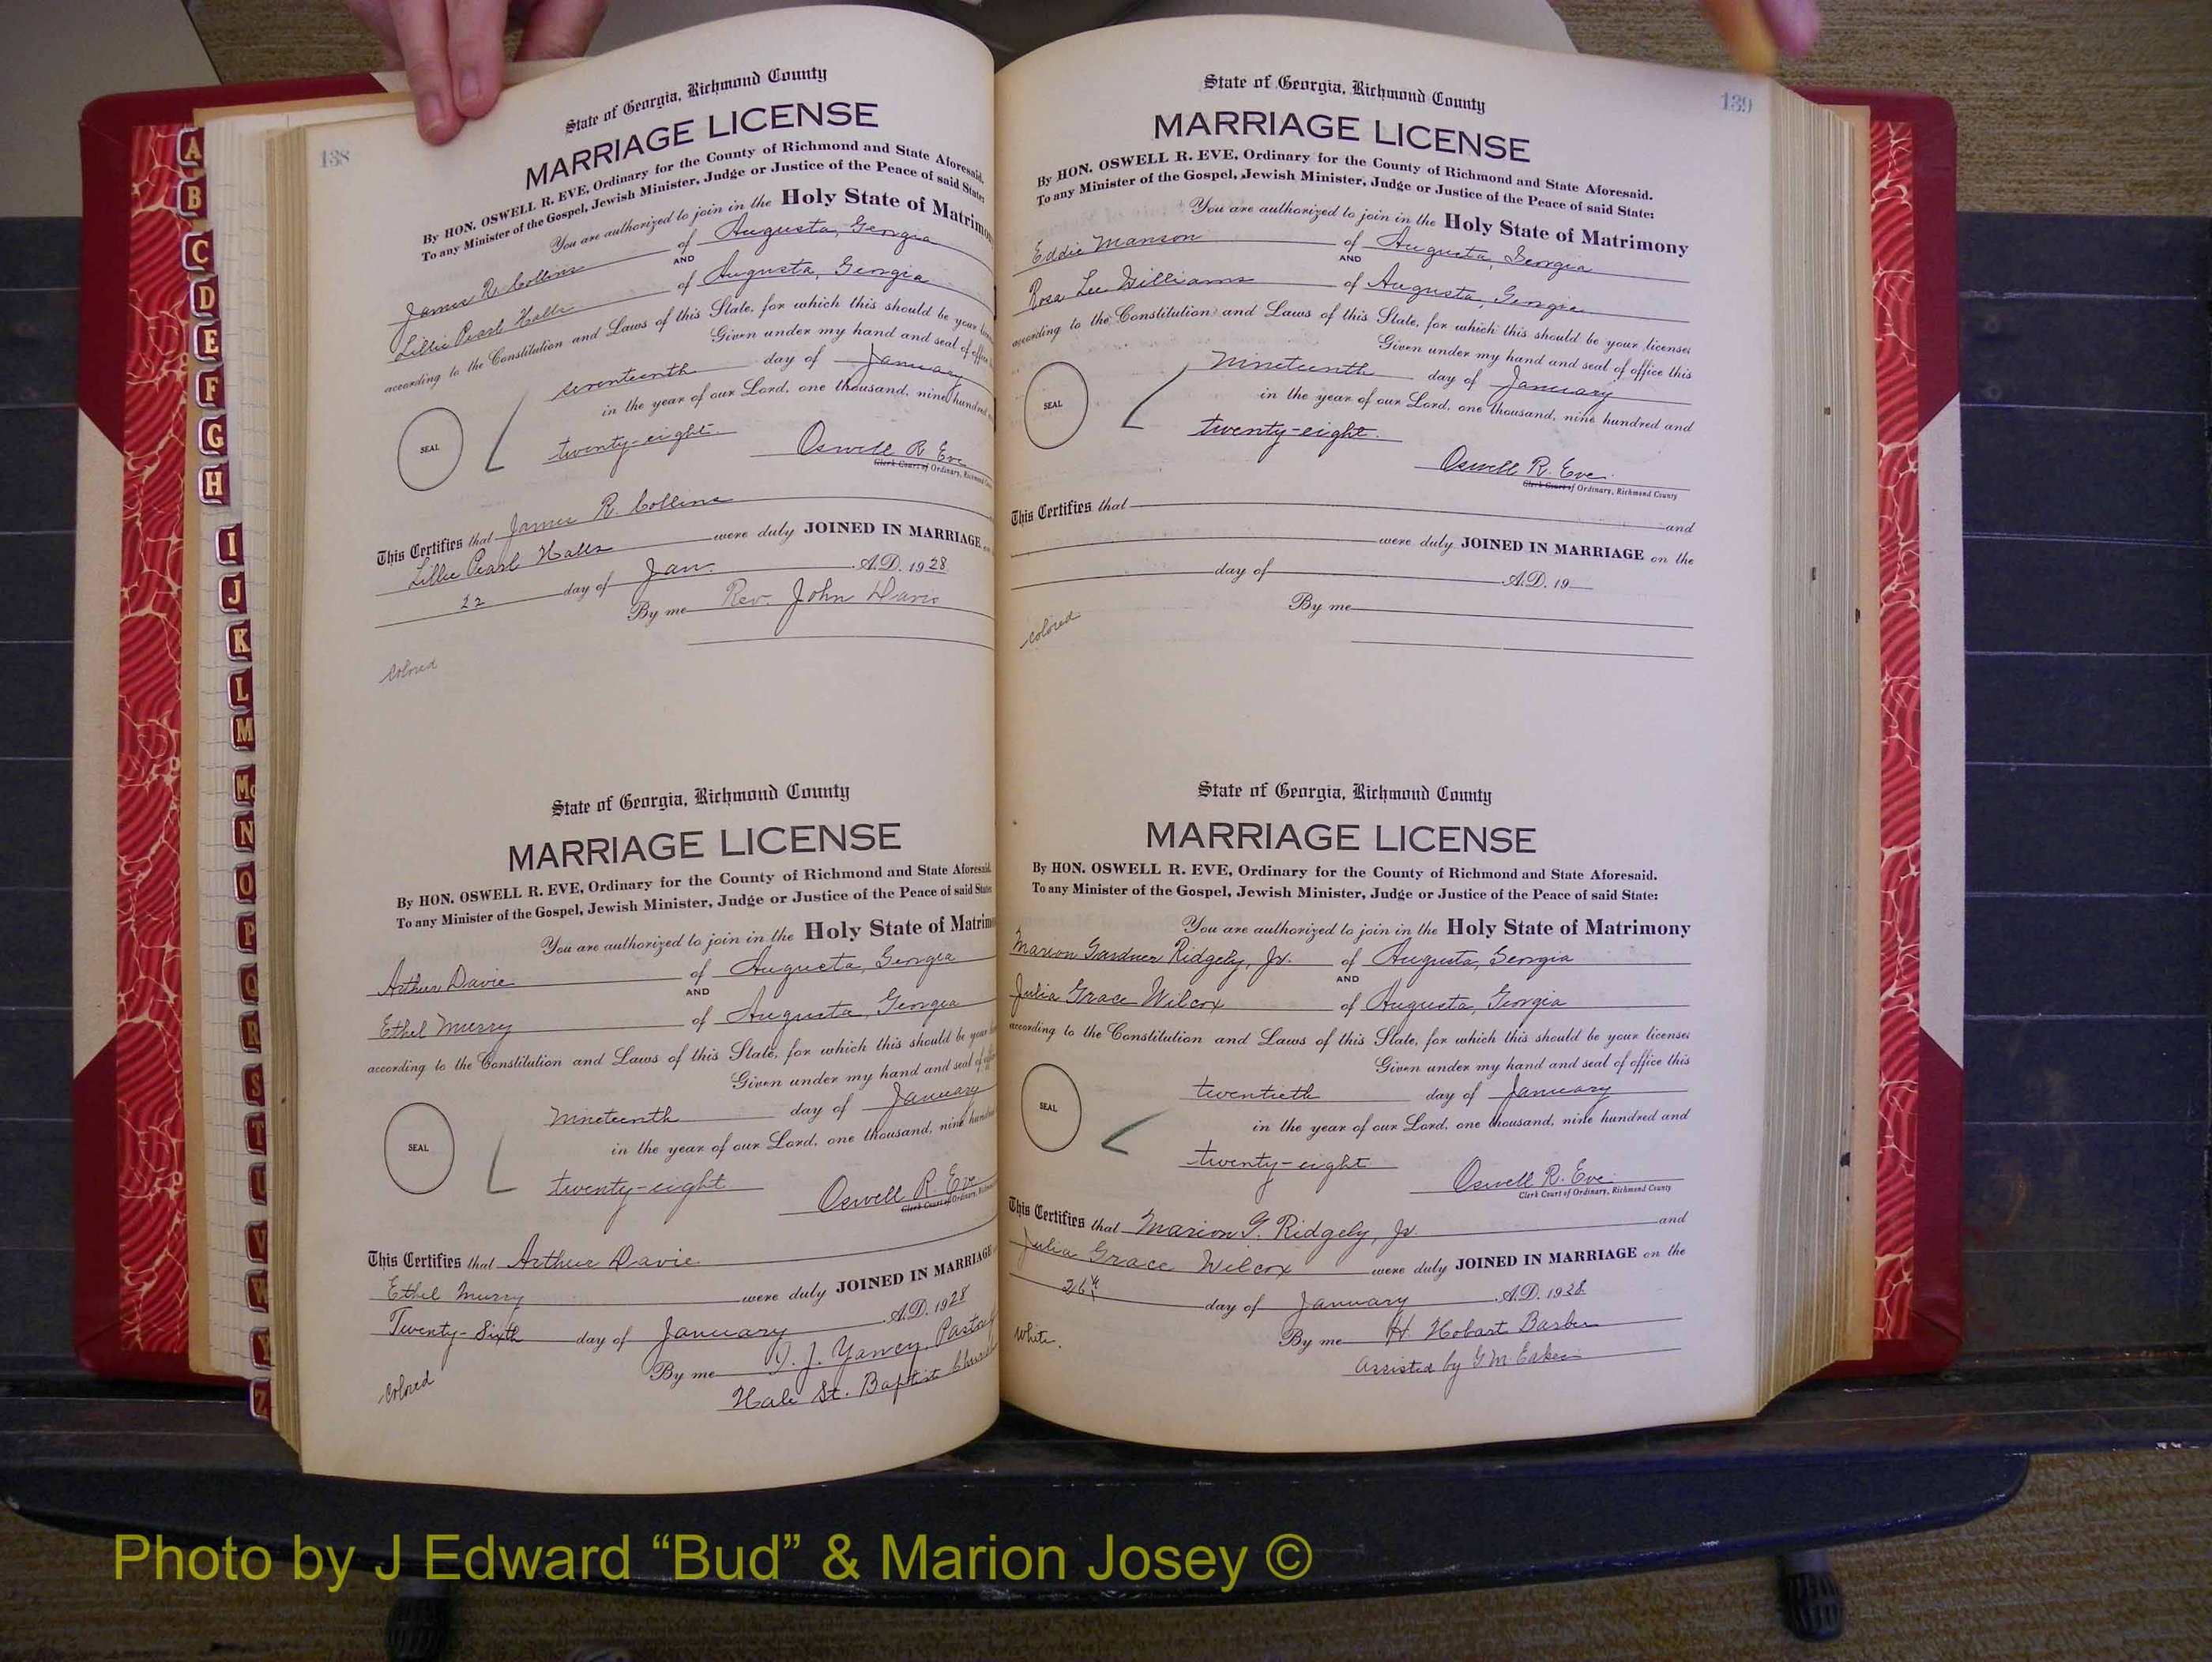 138
State of Georgia, Richmond County
MARRIAGE LICENSE
By HON. OSWELL R. EVE, Ordinary for the County of Richmond and State Aforesaid.
To any Minister of the Gospel, Jewish Minister, Judge or Justice of the Peace of said State:
You are authorized to join in the Holy State of Matrimony
James R. Collins of Augusta, Georgia
AND
Lillie Pearl Halls of Augusta, Georgia
according to the Constitution and Laws of this State, for which this should be your
Given under my hand and seal of office
seventeenth day of January
in the year of our Lord, one thousand, nine hundred
SEAL
twenty-eight.
Oswell R. Eve
Clerk Court of Ordinary, Richmond
This Certifies that James R. Collins
Lillie Pearl Halls were duly JOINED IN MARRIAGE
22 day of Jan. A.D. 1928
By me Rev. John Davis
Colored
State of Georgia, Richmond County
MARRIAGE LICENSE
By HON. OSWELL R. EVE, Ordinary for the County of Richmond and State Aforesaid.
To any Minister of the Gospel, Jewish Minister, Judge or Justice of the Peace of said State:
You are authorized to join in the Holy State of Matrimony
Arthur Davie of Augusta, Georgia
AND
Ethel Murry of Augusta, Georgia
according to the Constitution and Laws of this State, for which this should be your
Given under my hand and seal of office
nineteenth day of January
in the year of our Lord, one thousand, nine hundred
SEAL
twenty-eight
Oswell R. Eve
Clerk Court of Ordinary,
This Certifies that Arthur Davie
Ethel Murry were duly JOINED IN MARRIAGE
Twenty-Sixth day of January A.D. 1928
By me J. Yancy, Pastor
Hale St. Baptist Church
Colored
139
State of Georgia, Richmond County
MARRIAGE LICENSE
By HON. OSWELL R. EVE, Ordinary for the County of Richmond and State Aforesaid.
To any Minister of the Gospel, Jewish Minister, Judge or Justice of the Peace of said State:
You are authorized to join in the Holy State of Matrimony
Eddie Manson of Augusta, Georgia
AND
Rosa Lee Williams of Augusta, Georgia
according to the Constitution and Laws of this State, for which this should be your license:
Given under my hand and seal of office this
nineteenth day of January
in the year of our Lord, one thousand, nine hundred and
SEAL
twenty-eight.
Oswell R. Eve.
Clerk Court of Ordinary, Richmond County
This Certifies that and
were duly JOINED IN MARRIAGE on the
day of A.D. 19
By me
Colored
State of Georgia, Richmond County
MARRIAGE LICENSE
By HON. OSWELL R. EVE, Ordinary for the County of Richmond and State Aforesaid.
To any Minister of the Gospel, Jewish Minister, Judge or Justice of the Peace of said State:
You are authorized to join in the Holy State of Matrimony
Marion Gardner Ridgely, Jr. of Augusta, Georgia
AND
Julia Grace Wilcox of Augusta, Georgia
according to the Constitution and Laws of this State, for which this should be your license:
Given under my hand and seal of office this
twentieth day of January
in the year of our Lord, one thousand, nine hundred and
SEAL
twenty-eight
Oswell R. Eve
Clerk Court of Ordinary, Richmond County
This Certifies that Marion G. Ridgely, Jr. and
Julia Grace Wilcox were duly JOINED IN MARRIAGE on the
26th day of January A.D. 1928.
By me H Hobart Barber
Assisted by G M Eakes
White.
A
B
C
D
E
F
G
H
I
J
K
L
M
Mc
N
O
P
Q
R
S
T
U
V
W
Y
Z
Photo by J Edward “Bud” & Marion Josey ©